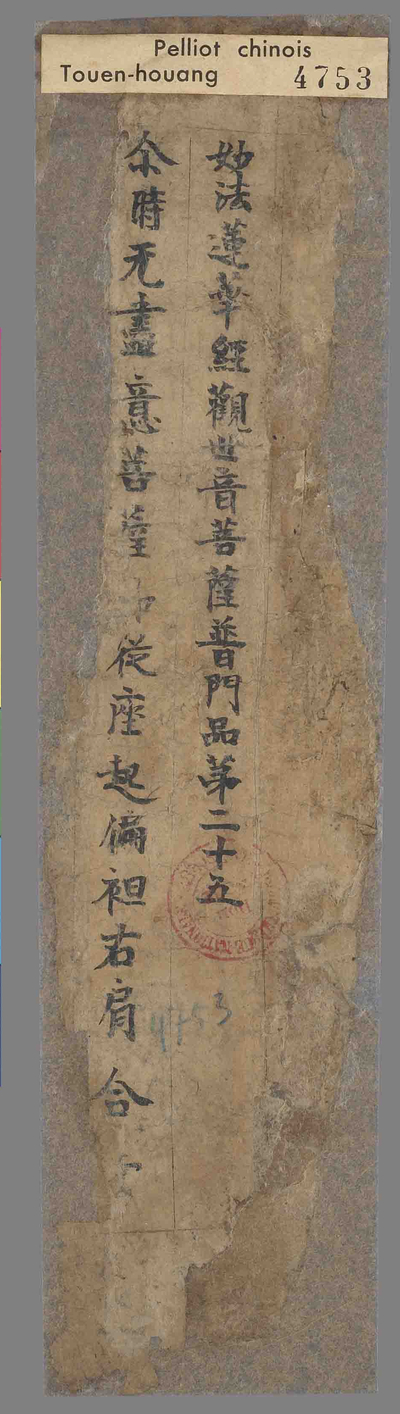 Pelliot chinois
Touen-houang 4753
妙法蓮華經觀世音菩薩普門品苐二十五
尒時无盡意菩薩即從座起偏袒右肩合
4753